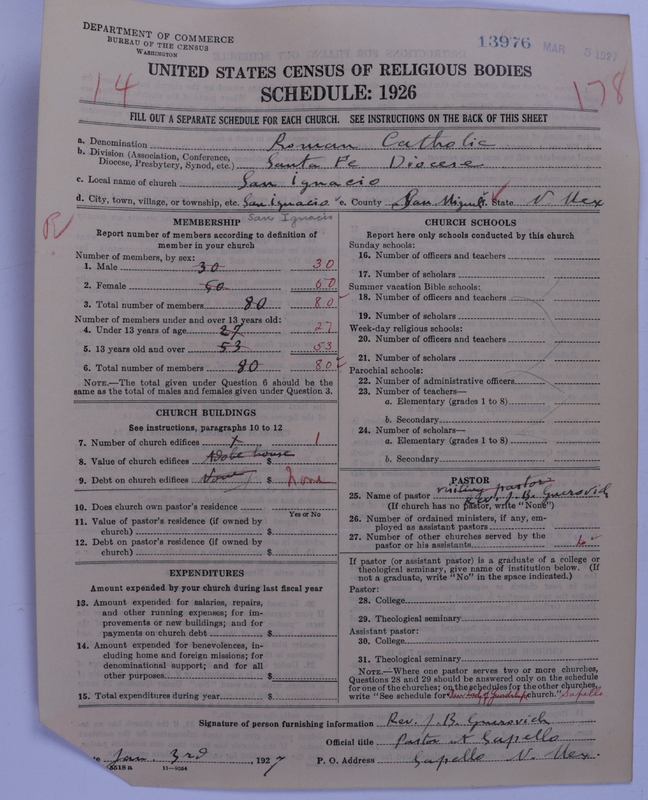 DEPARTMENT OF COMMERCE
BUREAU OF THE CENSUS
WASHINGTON
13976 MAR 5 1927
14
178
UNITED STATES CENSUS OF RELIGIOUS BODIES
SCHEDULE: 1926
FILL OUT A SEPARATE SCHEDULE FOR EACH CHURCH. SEE INSTRUCTIONS ON THE BACK OF THIS SHEET
a. Denomination Roman Catholic
b. Division (Association, Conference,
Diocese, Presbytery, Synod, etc.) Santa Fe Diocese
c. Local name of church San Ignacio
d. City, town, village, or township, etc. San Ignacio e. County San Miguel State N. Mex
San Ignacio
R
MEMBERSHIP
Report number of members according to definition of
member in your church
Number of members, by sex:
1. Male 30 30
2. Female 50
3. Total number of members 80 80
Number of members under and over 13 years old:
4. Under 13 years of age 27 27
5. 13 years old and over 53 53
6. Total number of members 80 80
NOTE.—The total given under Question 6 should be the
same as the total of males and females given under Question 3.
CHURCH BUILDINGS
See instructions, paragraphs 10 to 12
7. Number of church edifices 1
8. Value of church edifices Adobe house $
9. Debt on church edifices None $ None
10. Does church own pastor's residence
Yes or No
11. Value of pastor's residence (if owned by
church) $
12. Debt on pastor's residence (if owned by
church) $
EXPENDITURES
Amount expended by your church during last fiscal year
13. Amount expended for salaries, repairs,
and other running expenses; for im-
provements or new buildings; and for
payments on church debt $
14. Amount expended for benevolences, in-
cluding home and foreign missions; for
denominational support; and for all
other purposes $
15. Total expenditures during year $
CHURCH SCHOOLS
Report here only schools conducted by this church
Sunday schools:
16. Number of officers and teachers
17. Number of scholars
Summer vacation Bible schools:
18. Number of officers and teachers
19. Number of scholars
Week-day religious schools:
20. Number of officers and teachers
21. Number of scholars
Parochial schools:
22. Number of administrative officers
23. Number of teachers—
a. Elementary (grades 1 to 8)
b. Secondary
24. Number of scholars—
a. Elementary (grades 1 to 8)
b. Secondary
PASTOR
visiting pastor
25. Name of pastor Rev. J. B. Guerovich
(If church has no pastor, write "None")
26. Number of ordained ministers, if any, em-
ployed as assistant pastors
27. Number of other churches served by the
pastor or his assistants
If pastor (or assistant pastor) is a graduate of a college or
theological seminary, give name of institution below. (If
not a graduate, write "No" in the space indicated.)
Pastor:
28. College
29. Theological seminary
Assistant pastor:
30. College
31. Theological seminary
NOTE.—Where one pastor serves two or more churches,
Questions 28 and 29 should be answered only on the schedule
for one of the churches; on the schedules for the other churches,
write "See schedule for Our Lady of Guadalupe church." Sapello
Signature of person furnishing information Rev. J. B. Guerovich
Official title Pastor at Sapello
Jan. 3rd, 1927 P. O. Address Sapello N. Mex.
8518a 11—9054